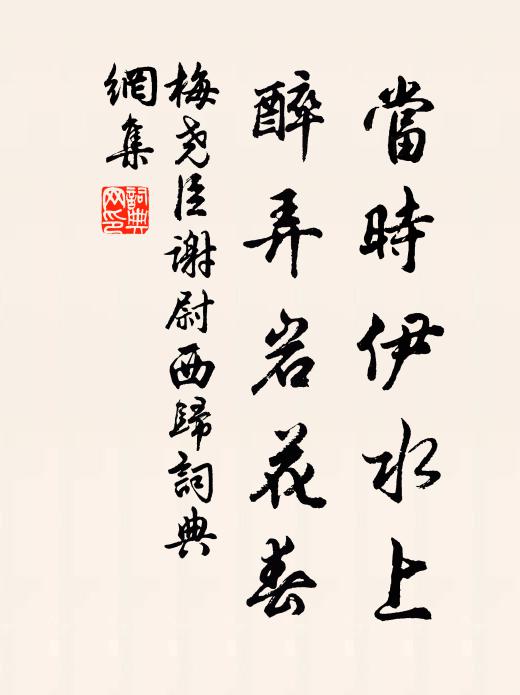 當時伊水上
醉弄岩花春
梅尧臣谢尉西歸詞典
網集
詞典网印